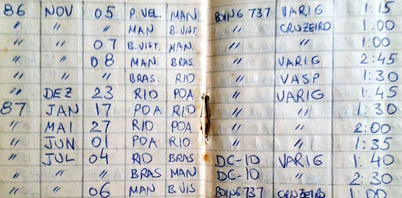 86 NOV 05 P. VEL. MAN BOING 737 VARIG 1:15
" " " MAN B.VIST. " CRUZEIRO 1:00
" " 07 B.VIST. MAN. " " 1:00
" " 08 MAN BRAS. " VARIG 2:45
" " " BRAS. RIO " VASP 1:30
" DEZ 23 RIO POA " VARIG 1:45
87 JAN 17 POA RIO " " 1:30
" MAI 27 RIO POA " " 2:00
" JUN 01 POA RIO " " 1:35
" JUL 04 RIO BRAS DC-10 VARIG 1:40
" " " BRAS MAN DC-10 " 2:30
" " 06 MAN B.VIS BOING 737 CRUZEIRO 1:00